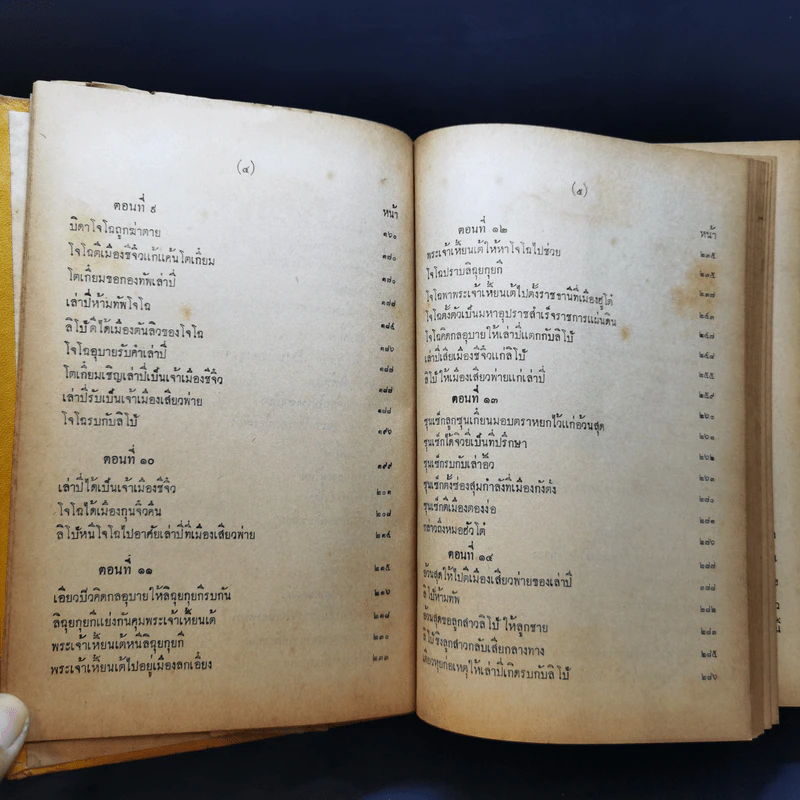 (๔)
ตอนที่ ๙
หน้า
บิดาโจโฉถูกฆ่าตาย ๑๖๐
โจโฉตีเมืองชีจิ๋วแก้แค้นโตเกี๋ยม ๑๗๐
โตเกี๋ยมขอกองทัพเล่าปี่ ๑๗๑
เล่าปี่ห้ามทัพโจโฉ ๑๗๗
ลิโป้ตีได้เมืองตันลิวของโจโฉ ๑๘๕
โจโฉอุบายรับคำเล่าปี่ ๑๘๖
โตเกี๋ยมเชิญเล่าปี่เป็นเจ้าเมืองชีจิ๋ว ๑๘๗
เล่าปี่รับเป็นเจ้าเมืองเสียวพ่าย ๑๘๗
โจโฉรบกับลิโป้ ๑๘๘
๑๙๖
ตอนที่ ๑๐
๑๙๙
เล่าปี่ได้เป็นเจ้าเมืองชีจิ๋ว ๒๐๑
โจโฉได้เมืองกุนจิ๋วคืน ๒๐๘
ลิโป้หนีโจโฉไปอาศัยเล่าปี่ที่เมืองเสียวพ่าย ๒๑๕
ตอนที่ ๑๑
๒๑๕
เอียวปิวคิดกลอุบายให้ลิฉุยกุยกีรบกัน ๒๑๖
ลิฉุยกุยกีแย่งกันคุมพระเจ้าเหี้ยนเต้ ๒๑๘
พระเจ้าเหี้ยนเต้หนีลิฉุยกุยกี ๒๓๐
พระเจ้าเหี้ยนเต้ไปอยู่เมืองลกเอี๋ยง ๒๓๓
(๕)
ตอนที่ ๑๒
หน้า
พระเจ้าเหี้ยนเต้ให้หาโจโฉไปช่วย ๒๓๕
โจโฉปราบลิฉุยกุยกี ๒๓๕
โจโฉพาพระเจ้าเหี้ยนเต้ไปตั้งราชธานีที่เมืองฮูโต๋ ๒๓๗
โจโฉตั้งตัวเป็นมหาอุปราชสำเร็จราชการแผ่นดิน
โจโฉคิดกลอุบายให้เล่าปี่แตกกับลิโป้ ๒๔๗
เล่าปี่เสียเมืองชีจิ๋วแก่ลิโป้ ๒๔๘
ลิโป้ให้เมืองเสียวพ่ายแก่เล่าปี่ ๒๕๕
ตอนที่ ๑๓
๒๕๙
ซุนเซ็กลูกซุนเกี๋ยนมอบตราหยกไว้แก่อ้วนสุด ๒๖๐
ซุนเซ็กได้จิวยี่เป็นที่ปรึกษา ๒๖๑
ซุนเซ็กรบกับเล่าอิ้ว ๒๖๒
ซุนเซ็กตั้งซ่องสุมกำลังที่เมืองกังตั๋ง ๒๖๓
ซุนเซ็กตีเมืองตองง่อ ๒๗๐
กล่าวถึงหมอฮัวโต๋ ๒๘๑
ตอนที่ ๑๔
๒๘๗
อ้วนสุดให้ไปตีเมืองเสียวพ่ายของเล่าปี่
ลิโป้ห้ามทัพ
อ้วนสุดขอลูกสาวลิโป้ให้ลูกชาย
ลิโป้ชิงลูกสาวกลับเสียกลางทาง
เตียวหุยก่อเหตุให้เล่าปี่เกิดรบกับลิโป้